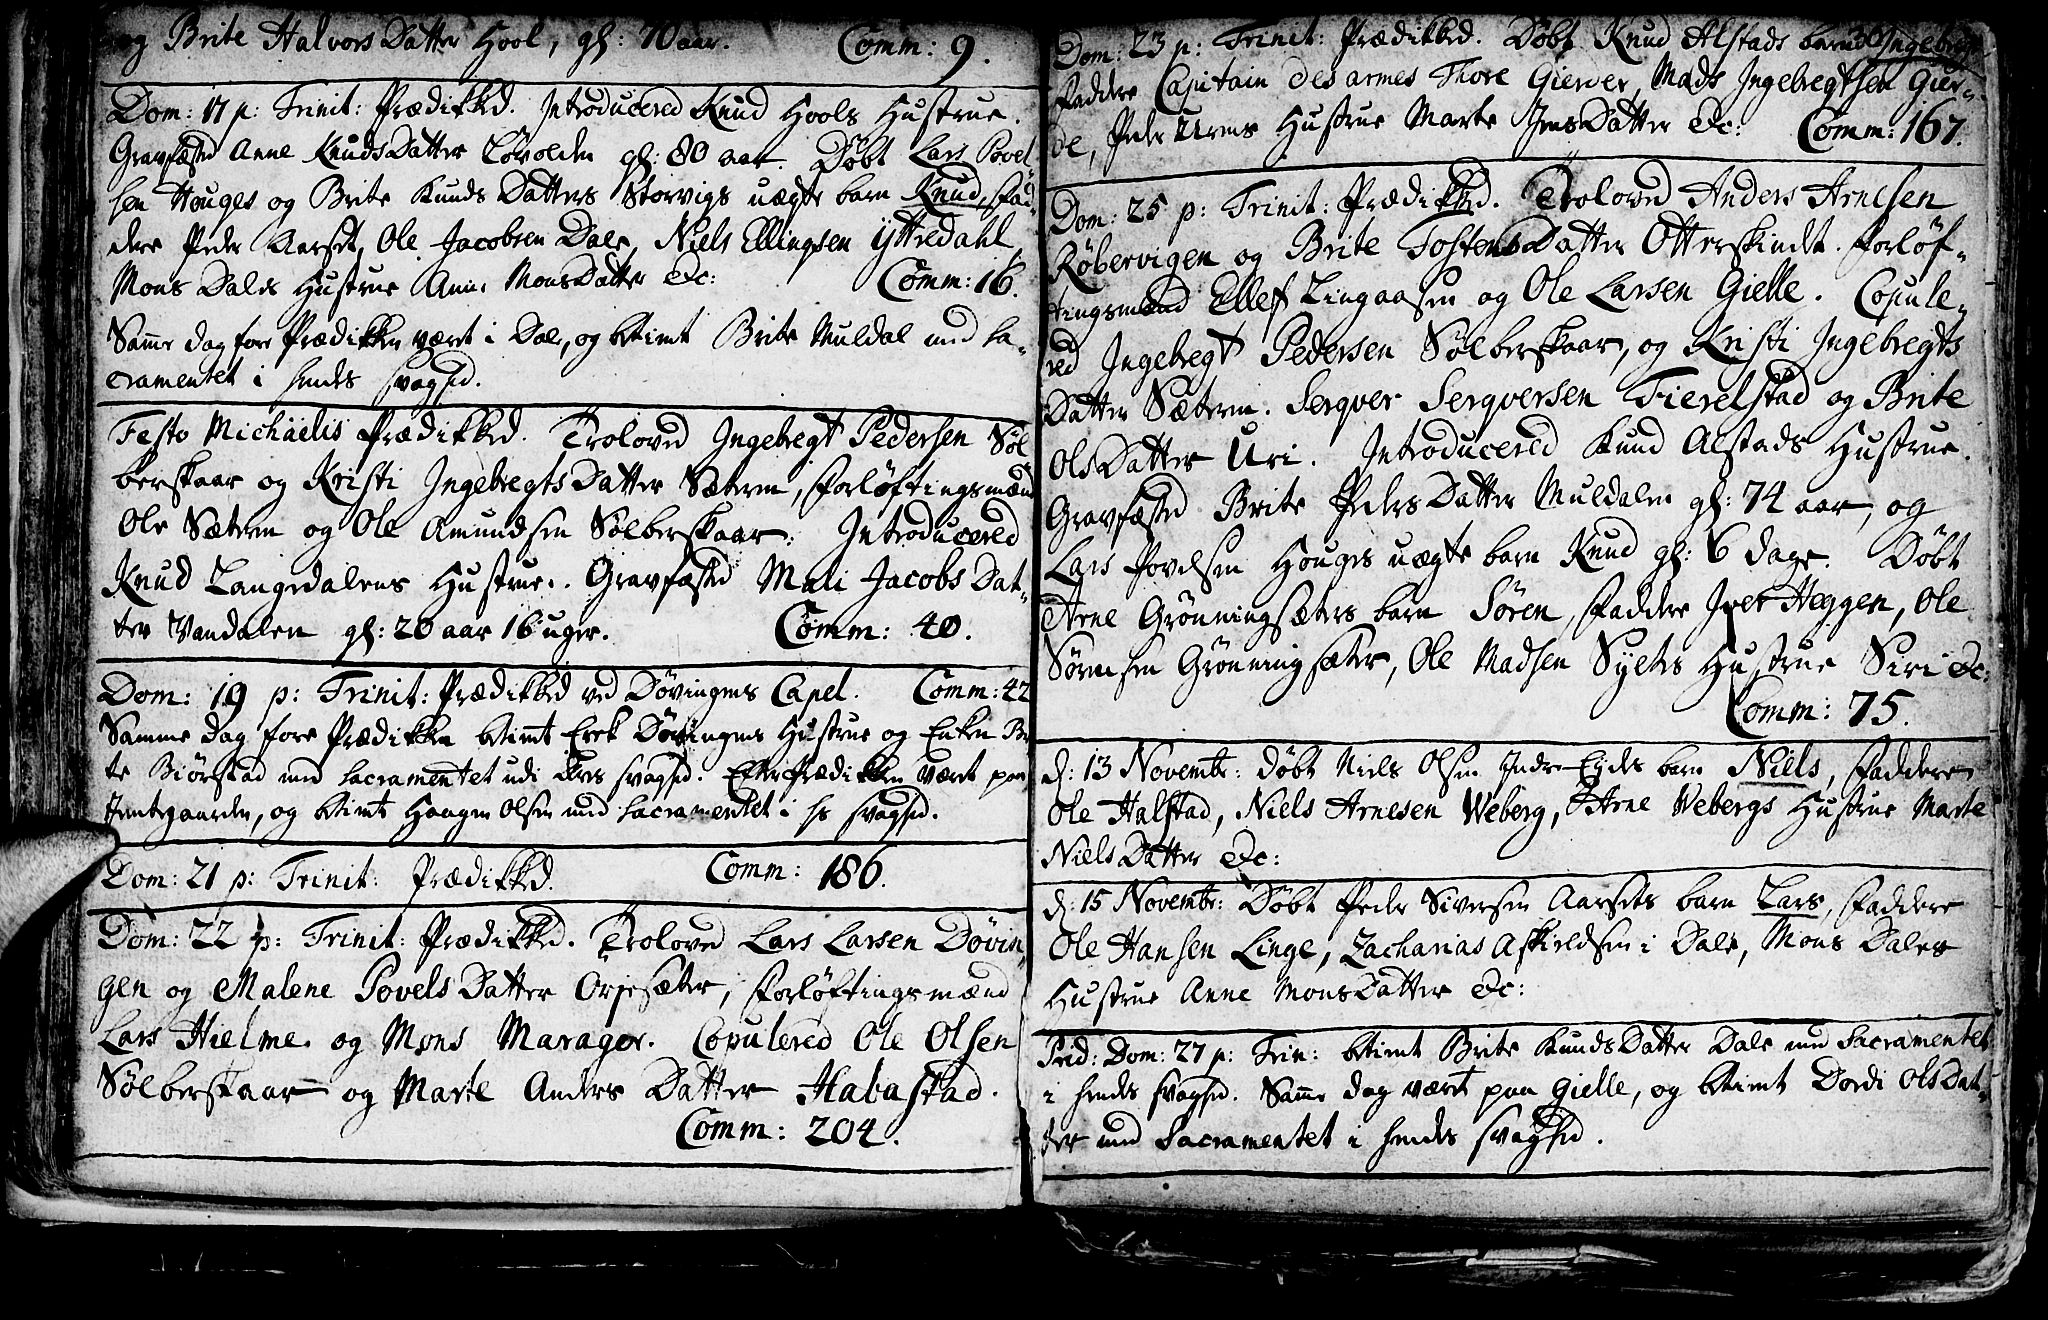 og Brite Halvors Datter Hool, gl: 70 aar. Comm: 9.
Dom: 17 p: Trinit: Prædikked. Introducered Knud Hools Hustrue.
Gravfæsted Anne Knuds Datter Løvolden gl: 80 aar. Døbt Lars Povel-
sen Houges og Brite Knuds Datters Storvigs uægte barn Knud, fad-
dere Peder Aarset, Ole Jacobsen Dale, Niels Ellingsen Yttredahl,
Mons Dales Hustrue Anne MonsDatter &c: Comm: 16.
Samme dag fore Prædikken været i Dale, og betient Brite Muldal med Sa-
cramentet i hendes svaghed.
Festo Michaëlis Prædikked. Troloved Ingebregt Pedersen Søl
berskaar og Kristi IngebregtsDatter Sæteren, forløftingsmænd
Ole Sæteren og Ole Amundsen Sølberskaar. Introducered
Knud Langedalens Hustrue. Gravfæsted Mali Jacobs Dat-
ter Vandalen gl: 20 aar 16 uger. Comm: 40.
Dom: 19 p: Trinit: Prædikked ved Døvingens Capel. Comm: 42
Samme dag fore Prædikken betient Erek Døvingens Hustrue og Enken Bri
te Biørstad med Sacramentet udi deres svaghed. Efter Prædikken været paa
gaarden, og betient Haagen Olsen med Sacramentet i hs svaghed.
Dom: 21 p: Trinit: Prædikked. Comm: 186.
Dom: 22 p: Trinit: Prædikked. Troloved Lars Larsen Døvin-
gen og Malene Povels Datter Orjesæter, forløftingsmænd
Lars Hielme og Mons Marager. Copulered Ole Olsen
Sølberskaar og Marte Anders Datter Habastad.
Comm: 204.
36
Dom: 23 p: Trinit: Prædikked. Døbt Knud Alstads barn Ingebregt
faddere Capitain des armes Thore Gierder, Mads Ingebregtsen Gier-
de, Peder Urens Hustrue Marte JensDatter &c: Comm: 167.
Dom: 25 p: Trinit: Prædikked. Troloved Anders Arnesen
Røbervigen og Brite TostensDatter Otterskindt. forløf-
tingsmænd Ellef Lingaasen og Ole Larsen Gielle. Copule-
red Ingebregt Pedersen Sølberskaar, og Kristi Ingebregts
Datter Sæteren. Serqver Serqversen Fierelstad og Brite
OlsDatter Uri. Introducered Knud Alstads Hustrue.
Gravfæsted Brite PedersDatter Muldalen gl: 74 aar, og
Lars Povelsen Houges uægte barn Knud gl: 6 dage. Døbt
Arne Grønningsæters barn Søren, faddere Iver Heggen, Ole
Sørensen Grønningsæter, Ole Madsen Syltes Hustrue Siri &c:
Comm: 75.
d: 13 Novembr: døbt Niels Olsen Indre-Eydes barn Niels, faddere
Ole Halstad, Niels Arnesen Weberg, Arne Webergs Hustrue Marte
NielsDatter &c:
d: 15 Novembr: Døbt Peder Siversen Aarsets barn Lars, faddere
Ole Hansen Linge, Zacharias Askieldsen i Dale, Mons Dales
Hustrue Anne MonsDatter &c:
Prid: Dom: 27 p: Trin: betient Brite KnudsDatter Dale med Sacramentet
i hendes svaghed. Samme dag været paa Gielle, og betient Dordi OlsDat-
ter med Sacramentet i hendes svaghed.